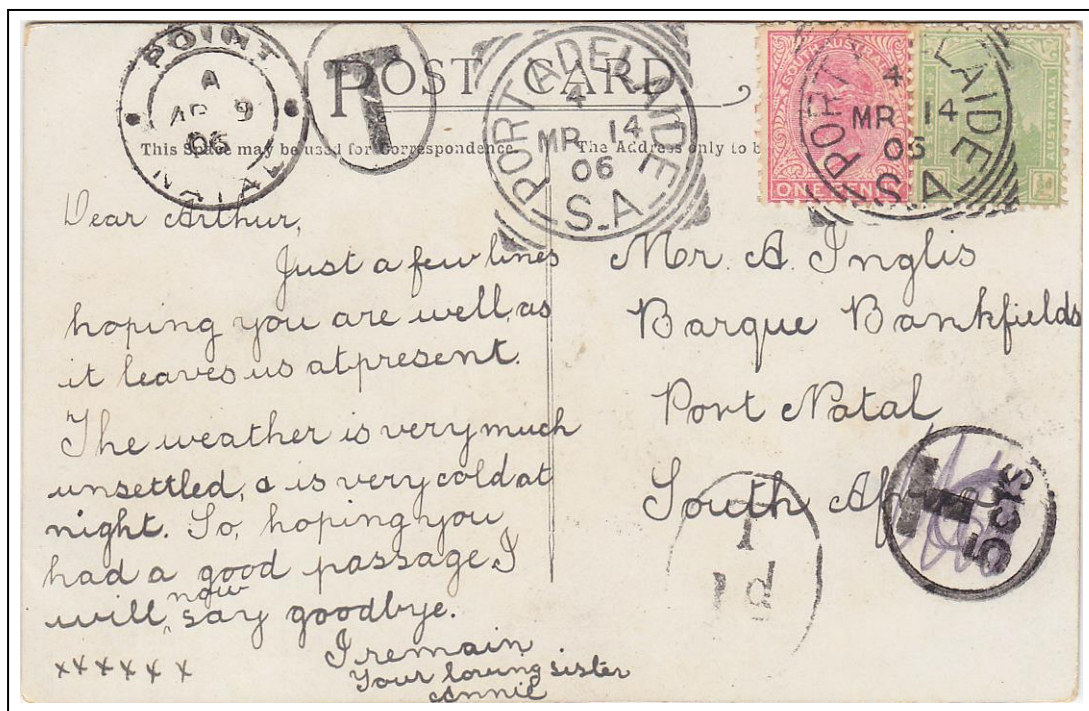 POINT
A
AP 9
06
NATAL
T
POST CARD
This Space may be used for Correspondence.
The Address only to b
PORT ADELAIDE
4
MR 14
06
S.A
SOUTH AUSTRALIA
ONE PENN
PORT ADELAIDE
4
MR 14
06
S.A
AUSTRALIA
Dear Arthur,
Just a few lines
hoping you are well, as
it leaves us at present.
The weather is very much
unsettled, & is very cold at
night. So, hoping you
had a good passage, I
will now say goodbye.
I remain
Your loving sister
Annie
xxxxxx
Mr. A. Inglis
Barque Bankfields
Port Natal
South Af
T
1d
T
5